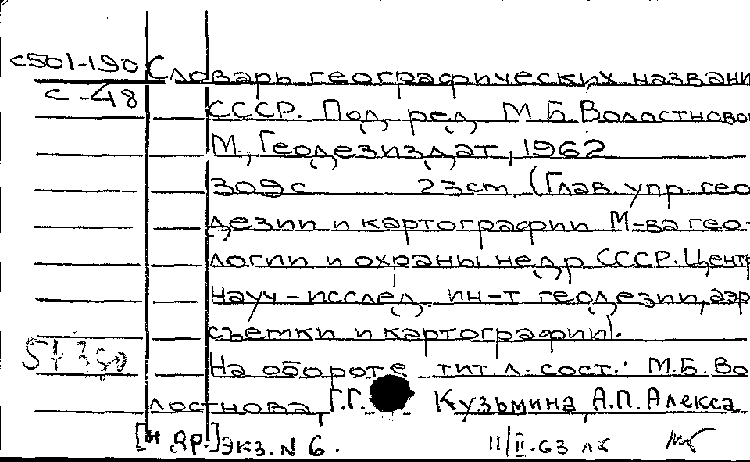 с501-190 Словарь географических названи
С-48 СССР. Под ред. М.Б.Волостново
М, Геодезиздат, 1962
309с 23cm (Глав.упр.гео-
дезии и картографии М-ва гео-
логии и охраны недр СССР. Центр
науч-исслед. ин-т геодезии, аэр
съемки и картографии).
На обороте тит.л. сост.: М.Б. Во
лостнова, Г.Г. Кузьмина А.П. Алекса
[И др.] экз. N 6. 11/II-63